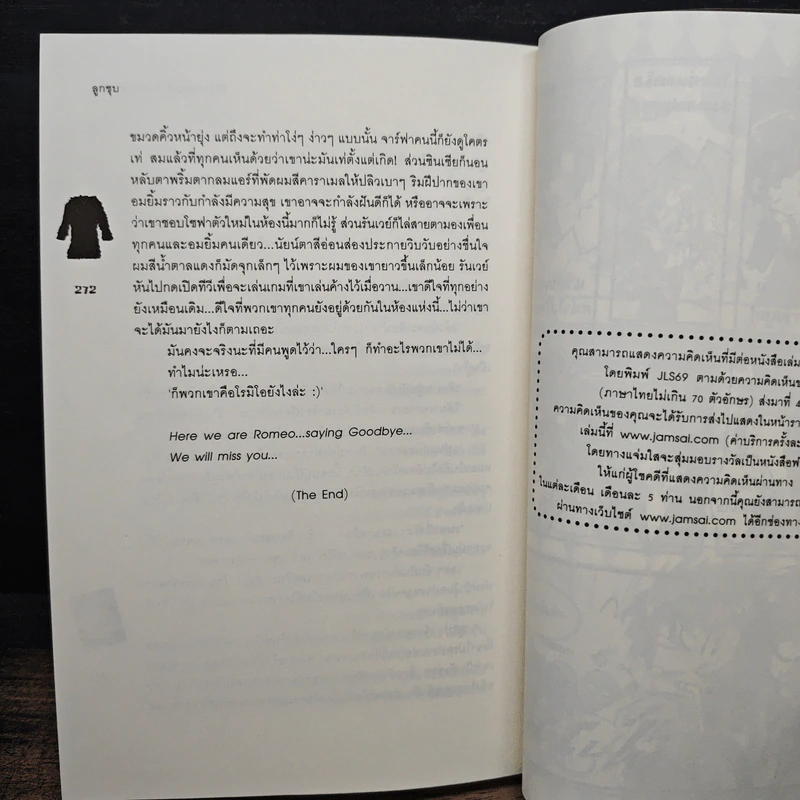 ลูกชุบ
ขมวดคิ้วหน้ายุ่ง แต่ถึงจะทำท่าโง่ๆ ง่าวๆ แบบนั้น จาร์ฟาคนนี้ก็ยังดูโคตร
เท่ สมแล้วที่ทุกคนเห็นด้วยว่าเขาน่ะมันเท่ตั้งแต่เกิด! ส่วนซินเซียก็นอน
หลับตาพริ้มตากลมแอร์ที่พัดผมสีคาราเมลให้ปลิวเบาๆ ริมฝีปากของเขา
อมยิ้มราวกับกำลังมีความสุข เขาอาจจะกำลังฝันดีก็ได้ หรืออาจจะเพราะ
ว่าเขาชอบโซฟาตัวใหม่ในห้องนี้มากก็ไม่รู้ ส่วนรันเวย์ก็ไล่สายตามองเพื่อน
ทุกคนและอมยิ้มคนเดียว...นัยน์ตาสีอ่อนส่องประกายวิบวับอย่างชื่นใจ
ผมสีน้ำตาลแดงก็มัดจุกเล็กๆ ไว้เพราะผมของเขายาวขึ้นเล็กน้อย รันเวย์
หันไปกดเปิดทีวีเพื่อจะเล่นเกมที่เขาเล่นค้างไว้เมื่อวาน...เขาดีใจที่ทุกอย่าง
ยังเหมือนเดิม...ดีใจที่พวกเขาทุกคนยังอยู่ด้วยกันในห้องแห่งนี้...ไม่ว่าเขา
จะได้มันมายังไงก็ตามเถอะ
272
มันคงจะจริงนะที่มีคนพูดไว้ว่า...ใครๆ ก็ทำอะไรพวกเขาไม่ได้...
ทำไมน่ะเหรอ...
'ก็พวกเขาคือโรมิโอยังไงล่ะ :)'
Here we are Romeo...saying Goodbye...
We will miss you...
(The End)
คุณสามารถแสดงความคิดเห็นที่มีต่อหนังสือเล่ม
โดยพิมพ์ JLS69 ตามด้วยความคิดเห็นข
(ภาษาไทยไม่เกิน 70 ตัวอักษร) ส่งมาที่ 4
ความคิดเห็นของคุณจะได้รับการส่งไปแสดงในหน้ารา
เล่มนี้ที่ www.jamsai.com (ค่าบริการครั้งละ
โดยทางแจ่มใสจะสุ่มมอบรางวัลเป็นหนังสือฟ
ให้แก่ผู้โชคดีที่แสดงความคิดเห็นผ่านทาง
ในแต่ละเดือน เดือนละ 5 ท่าน นอกจากนี้คุณยังสามารถ
ผ่านทางเว็บไซต์ www.jamsai.com ได้อีกช่องทาง